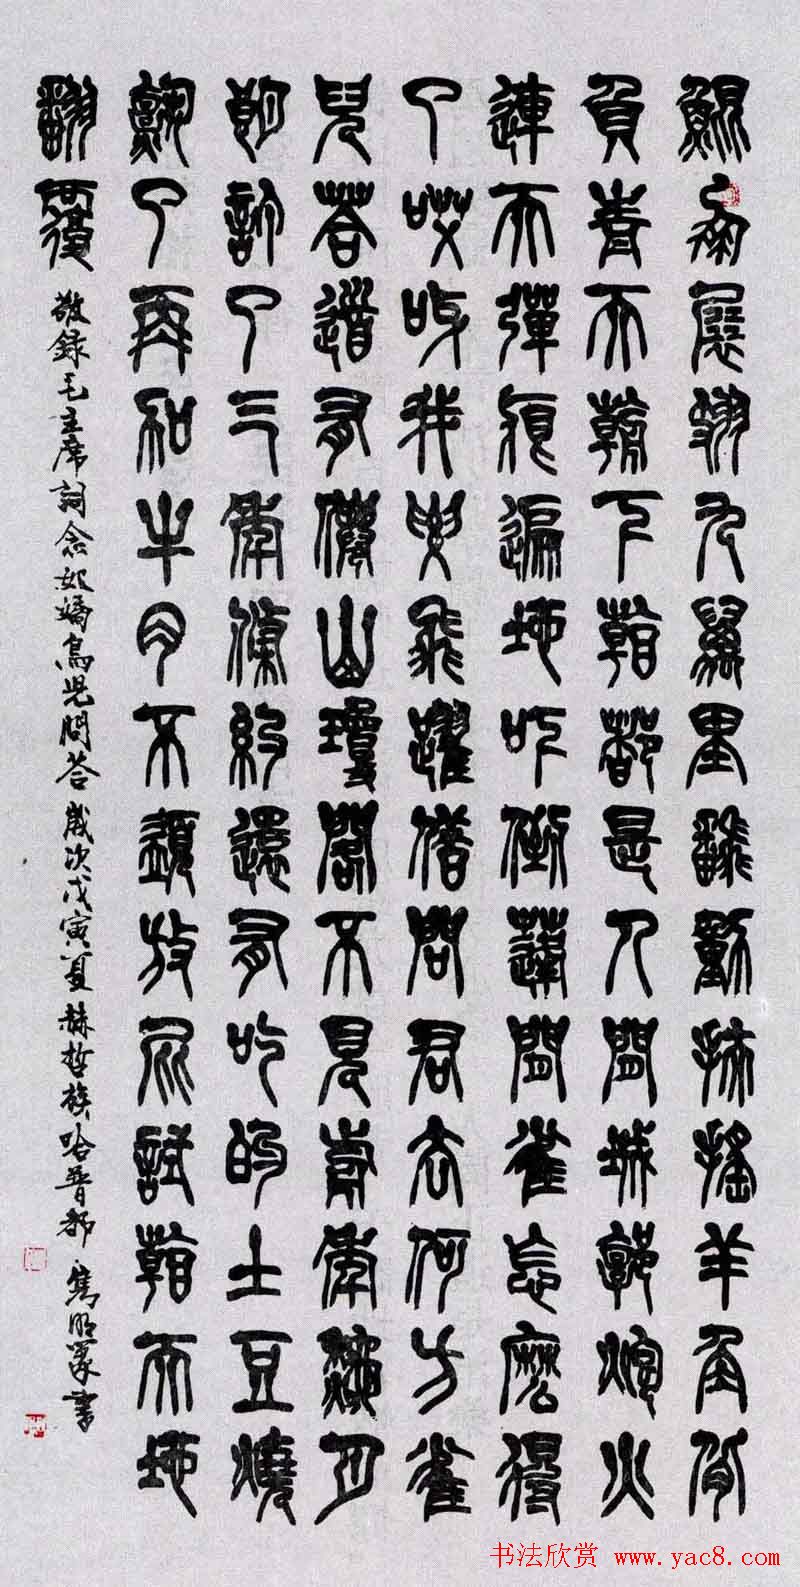 鯤鵬展翅九萬里翻動扶搖羊角背
負青天朝下看都是人間城郭炮火
連天彈痕遍地吓倒蓬間雀怎麼得
了哎呀我要飛躍借問君去何方雀
兒荅道有僊山瓊閣不見前年秋月
朗訂了三家條約還有吃的土豆燒
熟了再加牛肉不須放屁試看天地
翻覆
敬錄毛主席詞念奴嬌鳥児問荅 歲次戊寅夏赫哲族哈普都 雋明篆書
书法欣赏 www.yac8.com